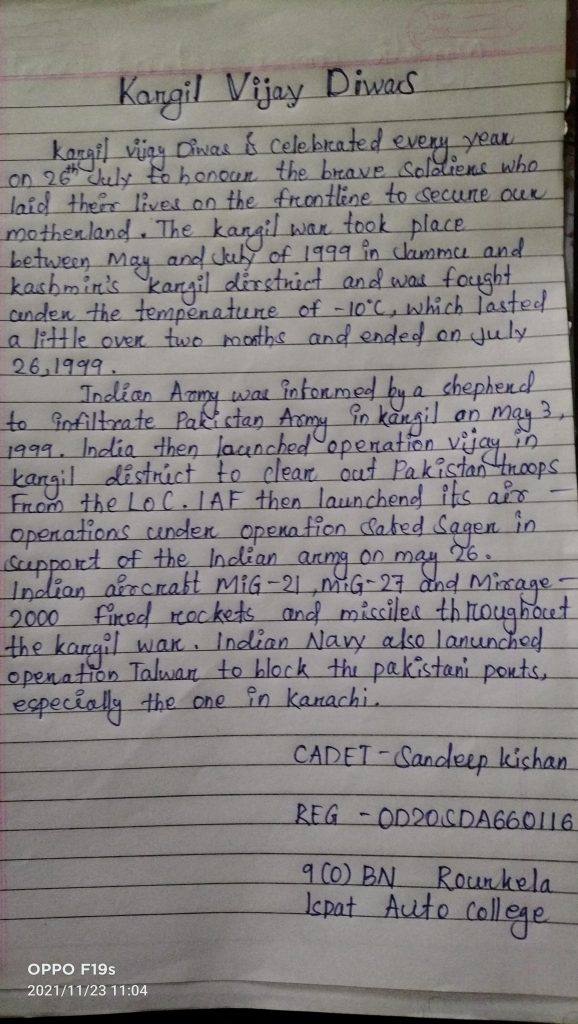 Kargil Vijay Diwas
Kargil vijay Diwas is celebrated every year
on 26th July to honour the brave Soldiers who
laid their lives on the frontline to secure our
motherland. The kargil war took place
between May and July of 1999 in Jammu and
kashmir's kargil dirstrict and was fought
under the temperature of -10°C, which lasted
a little over two months and ended on July
26,1999.
Indian Army was informed by a shepherd
to infiltrate Pakistan Army in kangil on May 3,
1999. India then launched operation vijay in
kangil district to clear out Pakistan troops
From the LOC. IAF then launchend its air -
operations under operation Safed Sager in
support of the Indian army on may 26.
Indian aircraft MiG-21, MiG-27 and Mirage -
2000 fired rockets and missiles throughout
the kargil war. Indian Navy also lanunched
operation Talwar to block the pakistani ports,
especially the one in Karachi.
CADET - Sandeep kishan
REG - OD20SDA660116
9(O) BN Rourkela
Ispat Auto College
OPPO F19s
2021/11/23 11:04